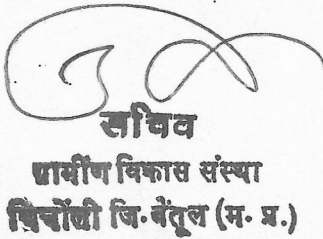 सचिव
ग्रामीण विकास संस्था
चिचोली जि. बैतूल (म. प्र.)